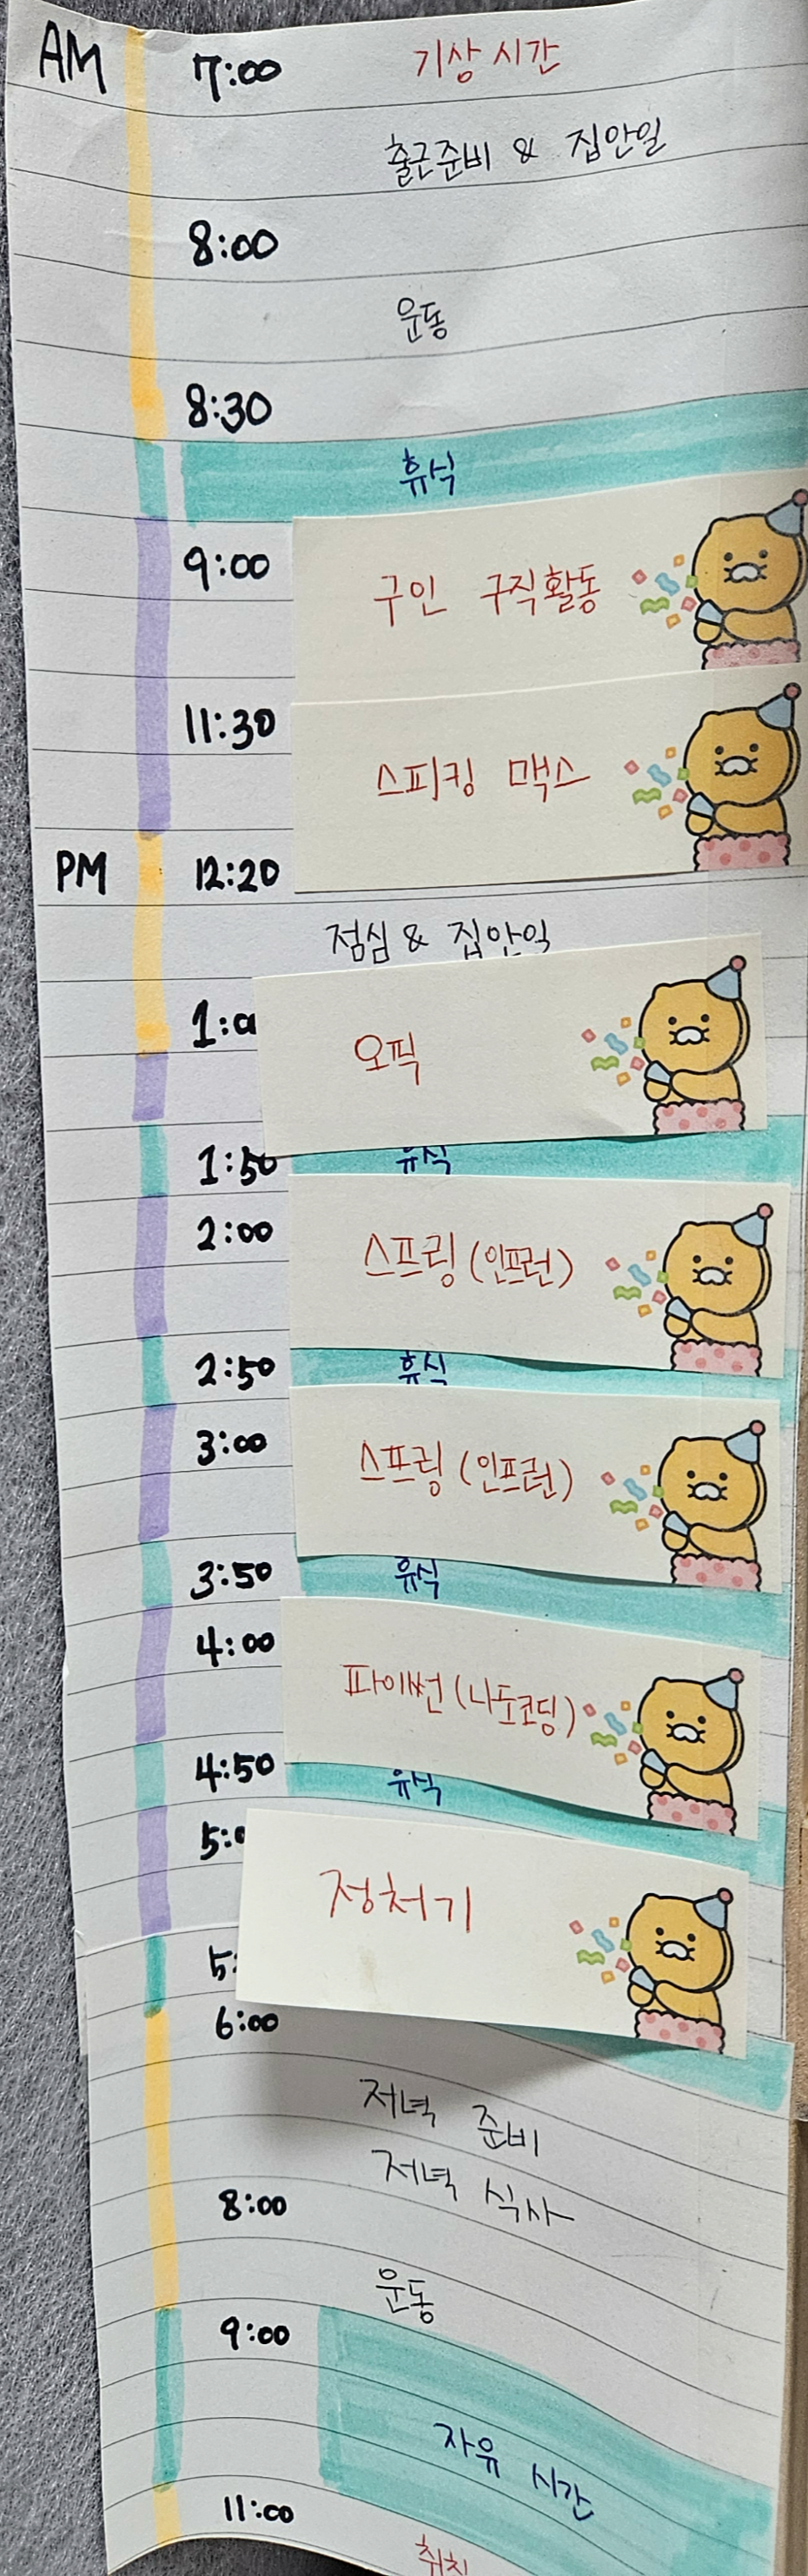 AM 7:00 기상 시간
출근준비 & 집안일
8:00
운동
8:30
휴식
9:00 구인 구직활동
11:30 스피킹 맥스
PM 12:20
점심 & 집안일
1:0 오픽
1:50 휴식
2:00 스프링 (인프런)
2:50 휴식
3:00 스프링 (인프런)
3:50 휴식
4:00 파이썬 (나도코딩)
4:50 휴식
5:0 정처기
5:
6:00
저녁 준비
저녁 식사
8:00
운동
9:00
자유 시간
11:00
취침